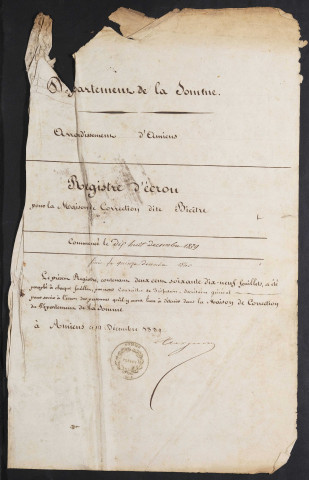 Département de la Somme.
Arrondissement d'Amiens
Registre d'écrou
pour la Maison de Correction dite Bicêtre
Commencé le dix huit Décembre 1839
fini le quinze
Le présent Registre, contenant deux cent soixante dix-neuf feuillets, a été
à chaque feuillet, par nous Conseiller de Préfecture, Secrétaire général
pour servir à l'écrou des personnes qu'il y aura lieu à détenir dans la Maison de Correction
du Département de la Somme
à Amiens le Décembre 1839